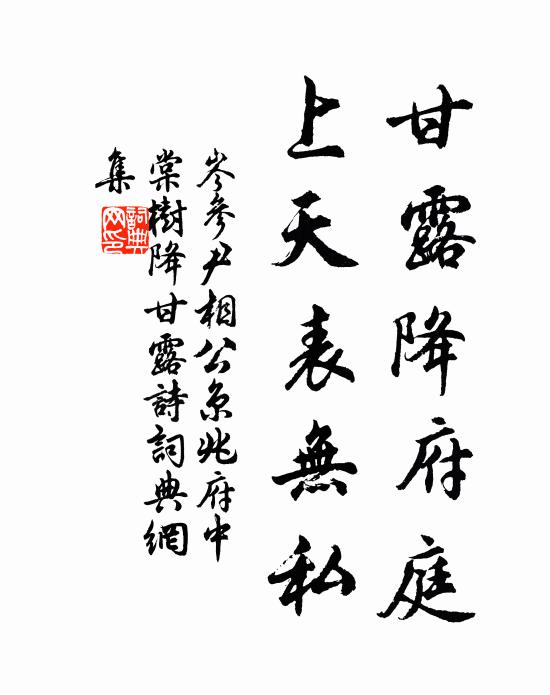 甘露降府庭
上天表無私
岑參尹相公京兆府中
棠樹降甘露詩詞典網
集
詞典
网印